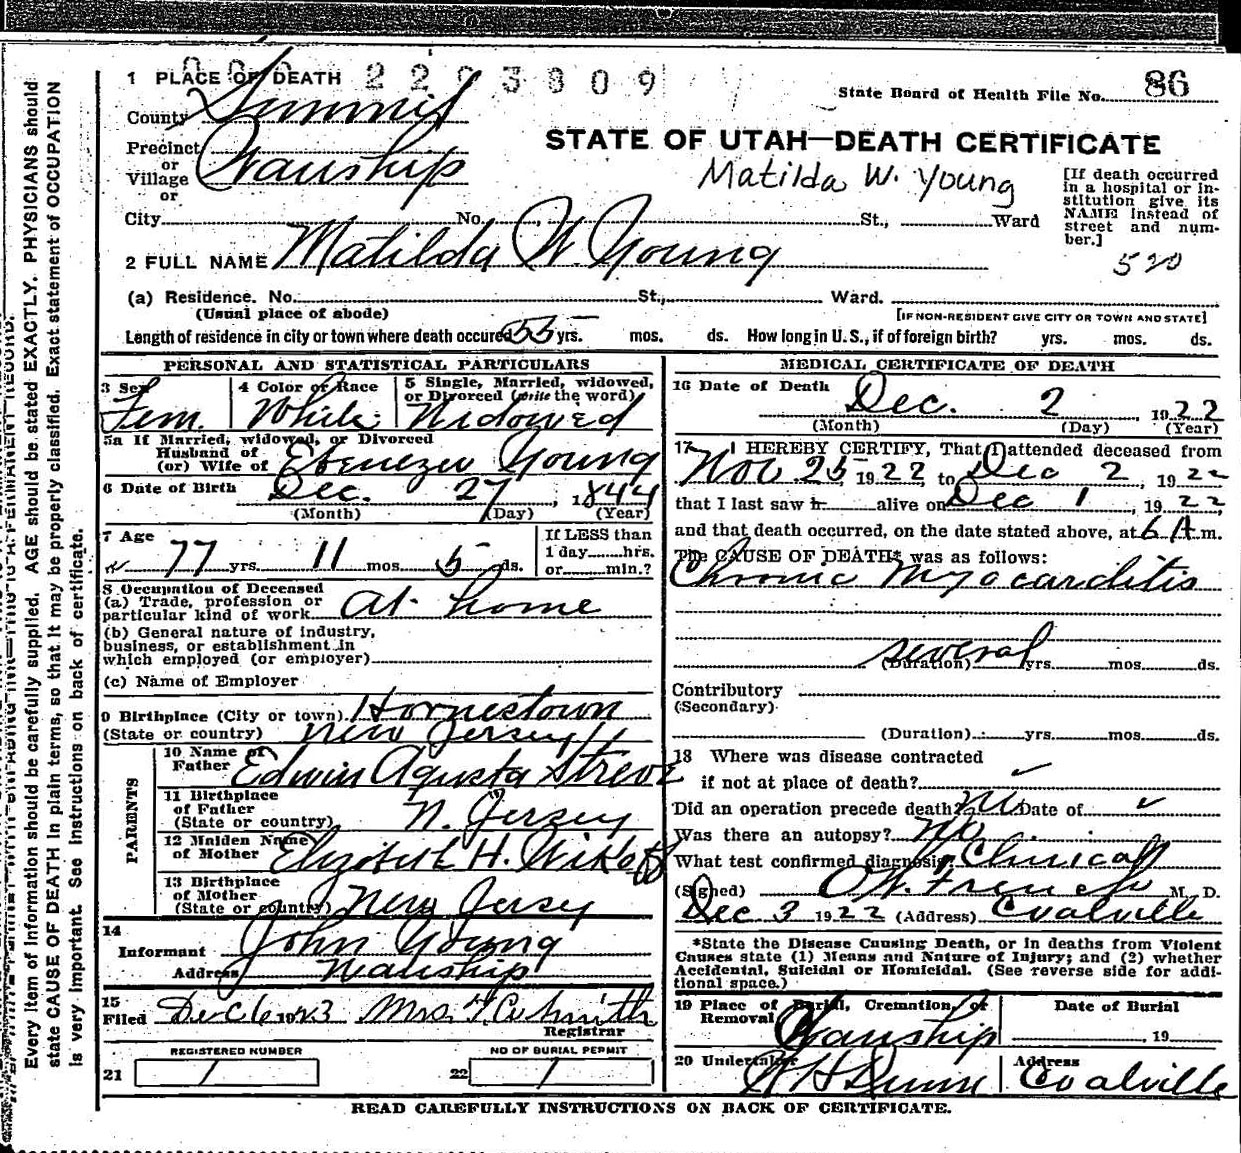 2 2 3 8 0 9
1 PLACE OF DEATH
State Board of Health File No. 86
County Summit
STATE OF UTAH—DEATH CERTIFICATE
Precinct
or
Village Wanship
or
Matilda W. Young
[If death occurred
in a hospital or in-
stitution give its
NAME instead of
street and num-
ber.]
City No. St., Ward
2 FULL NAME Matilda W Young
520
(a) Residence. No. St., Ward.
(Usual place of abode) [IF NON-RESIDENT GIVE CITY OR TOWN AND STATE]
Length of residence in city or town where death occured 55 yrs. mos. ds. How long in U.S., if of foreign birth? yrs. mos. ds.
PERSONAL AND STATISTICAL PARTICULARS
3 Sex Fem.
4 Color or Race White
5 Single, Married, widowed,
or Divorced (write the word)
Widowed
5a If Married, widowed, or Divorced
Husband of
(or) Wife of Ebenezer Young
6 Date of Birth Dec. 27, 1844
(Month) (Day) (Year)
7 Age 77 yrs. 11 mos. 5 ds.
If LESS than
1 day hrs.
or min.?
8 Occupation of Deceased
(a) Trade, profession or
particular kind of work At home
(b) General nature of industry,
business, or establishment in
which employed (or employer)
(c) Name of Employer
9 Birthplace (City or town) Hornestown
(State or country) New Jersey
PARENTS
10 Name of
Father Edwin Agusta
11 Birthplace
of Father
(State or country) N. Jersey
12 Maiden Name
of Mother Elizabeth H. Wikoff
13 Birthplace
of Mother
(State or country) New Jersey
14
Informant John Young
Address Wanship
15
Filed Dec 6 1923 Mrs. Smith
Registrar
REGISTERED NUMBER
21 1
NO OF BURIAL PERMIT
22 1
MEDICAL CERTIFICATE OF DEATH
16 Date of Death Dec. 2, 1922
(Month) (Day) (Year)
17 I HEREBY CERTIFY, That I attended deceased from
Nov. 25 1922 to Dec 2, 1922
that I last saw h alive on Dec 1, 1922,
and that death occurred, on the date stated above, at 6 A m.
The CAUSE OF DEATH* was as follows:
Chronic Myocarditis
several
(Duration) yrs. mos. ds.
Contributory
(Secondary)
(Duration) yrs. mos. ds.
18 Where was disease contracted
if not at place of death? ✓
Did an operation precede death? No Date of ✓
Was there an autopsy? No
What test confirmed diagnosis? Clinical
(Signed) O.W. French M. D.
Dec 3 1922 (Address) Coalville
*State the Disease Causing Death, or in deaths from Violent
Causes state (1) Means and Nature of Injury; and (2) whether
Accidental, Suicidal or Homicidal. (See reverse side for addi-
tional space.)
19 Place of Burial, Cremation, or
Removal Wanship
Date of Burial
19
20 Undertaker
Dunn
Address
Coalville
READ CAREFULLY INSTRUCTIONS ON BACK OF CERTIFICATE.
Every item of information should be carefully supplied. AGE should be stated EXACTLY. PHYSICIANS should
state CAUSE OF DEATH in plain terms, so that it may be properly classified. Exact statement of OCCUPATION
is very important. See instructions on back of certificate.